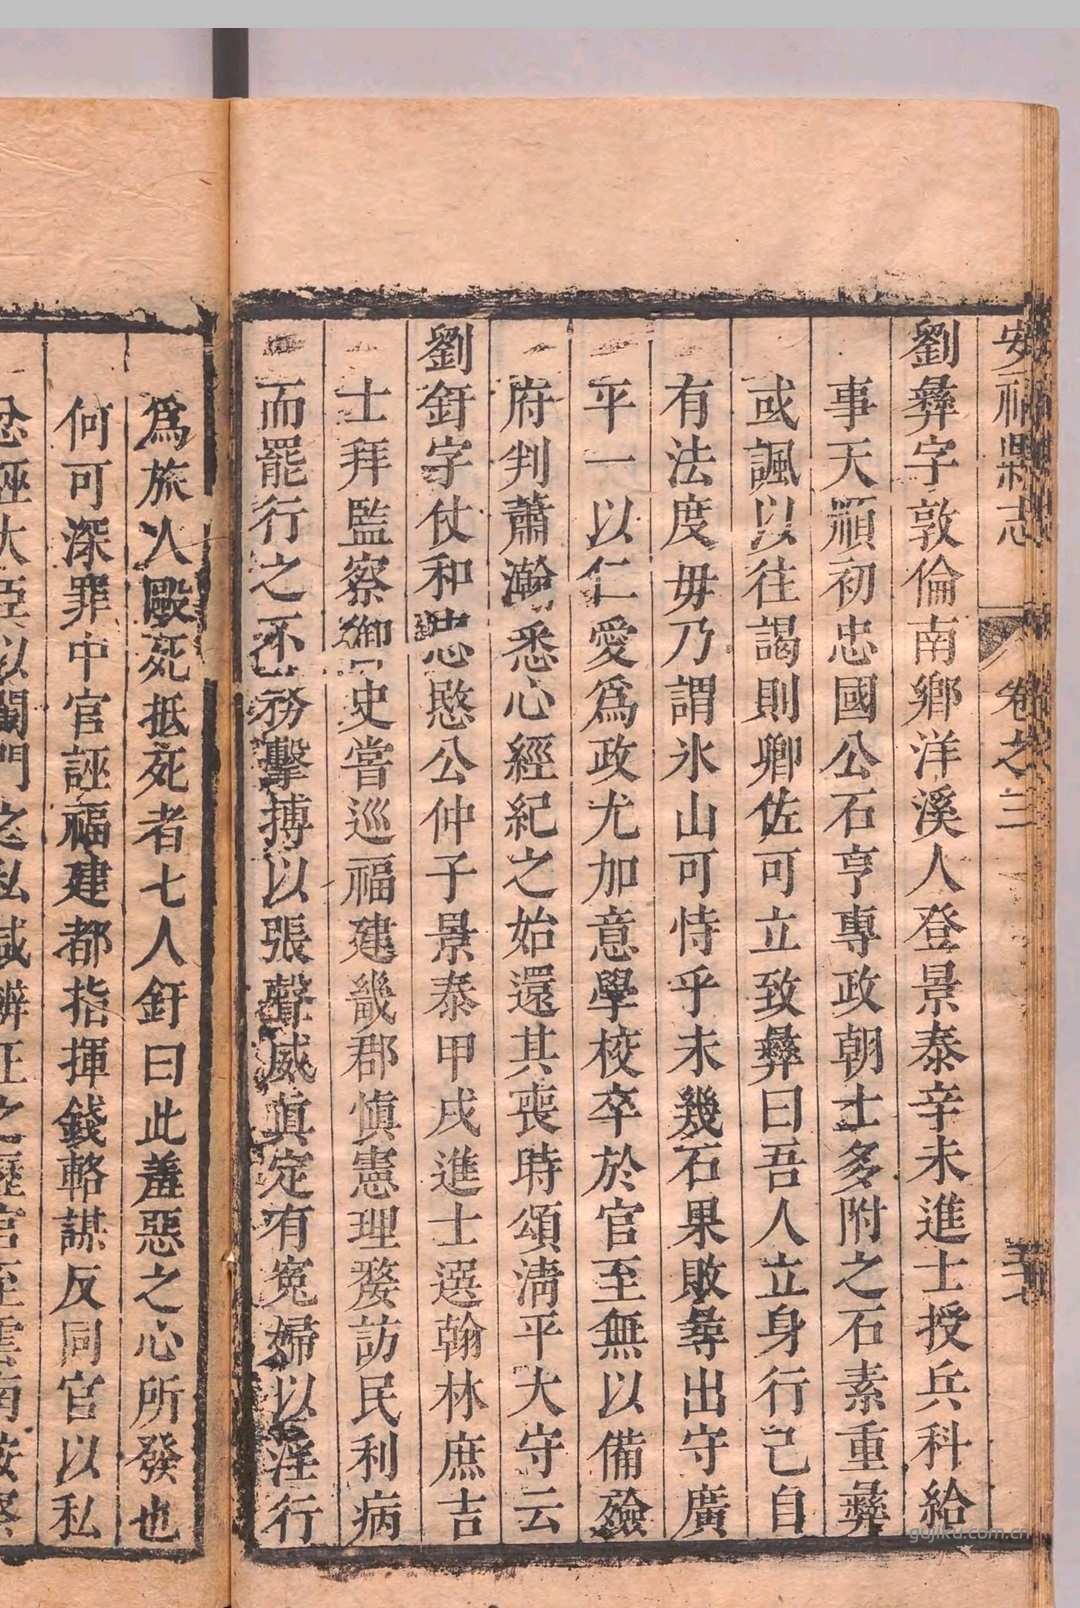 安福縣志 卷之三
劉彝字敦倫南鄉洋溪人登景泰辛未進士授兵科給
事天順初忠國公石亨專政朝士多附之石素重彝
或諷以往謁則卿佐可立致彝曰吾人立身行己自
有法度毋乃謂氷山可恃乎未幾石果敗彝出守廣
平一以仁愛爲政尤加意學校卒於官至無以備殮
府判蕭瀚悉心經紀之始還其喪時頌清平大守云
劉釪字仗和忠愍公仲子景泰甲戌進士選翰林庶吉
士拜監察御史嘗巡福建畿郡慎憲理婺訪民利病
而罷行之不務擊搏以張聲威真定有寃婦以淫行
爲旅人毆死抵死者七人釪曰此羞惡之心所發也
何可深罪中官誣福建都指揮錢輅謀反同官以私
忿誣大臣以閨門之私咸辨
gujiku.com.cn